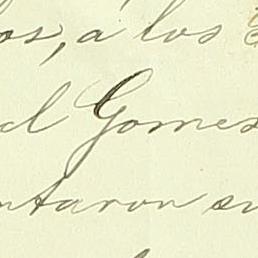 os, a los
d Gomes
ntaron su